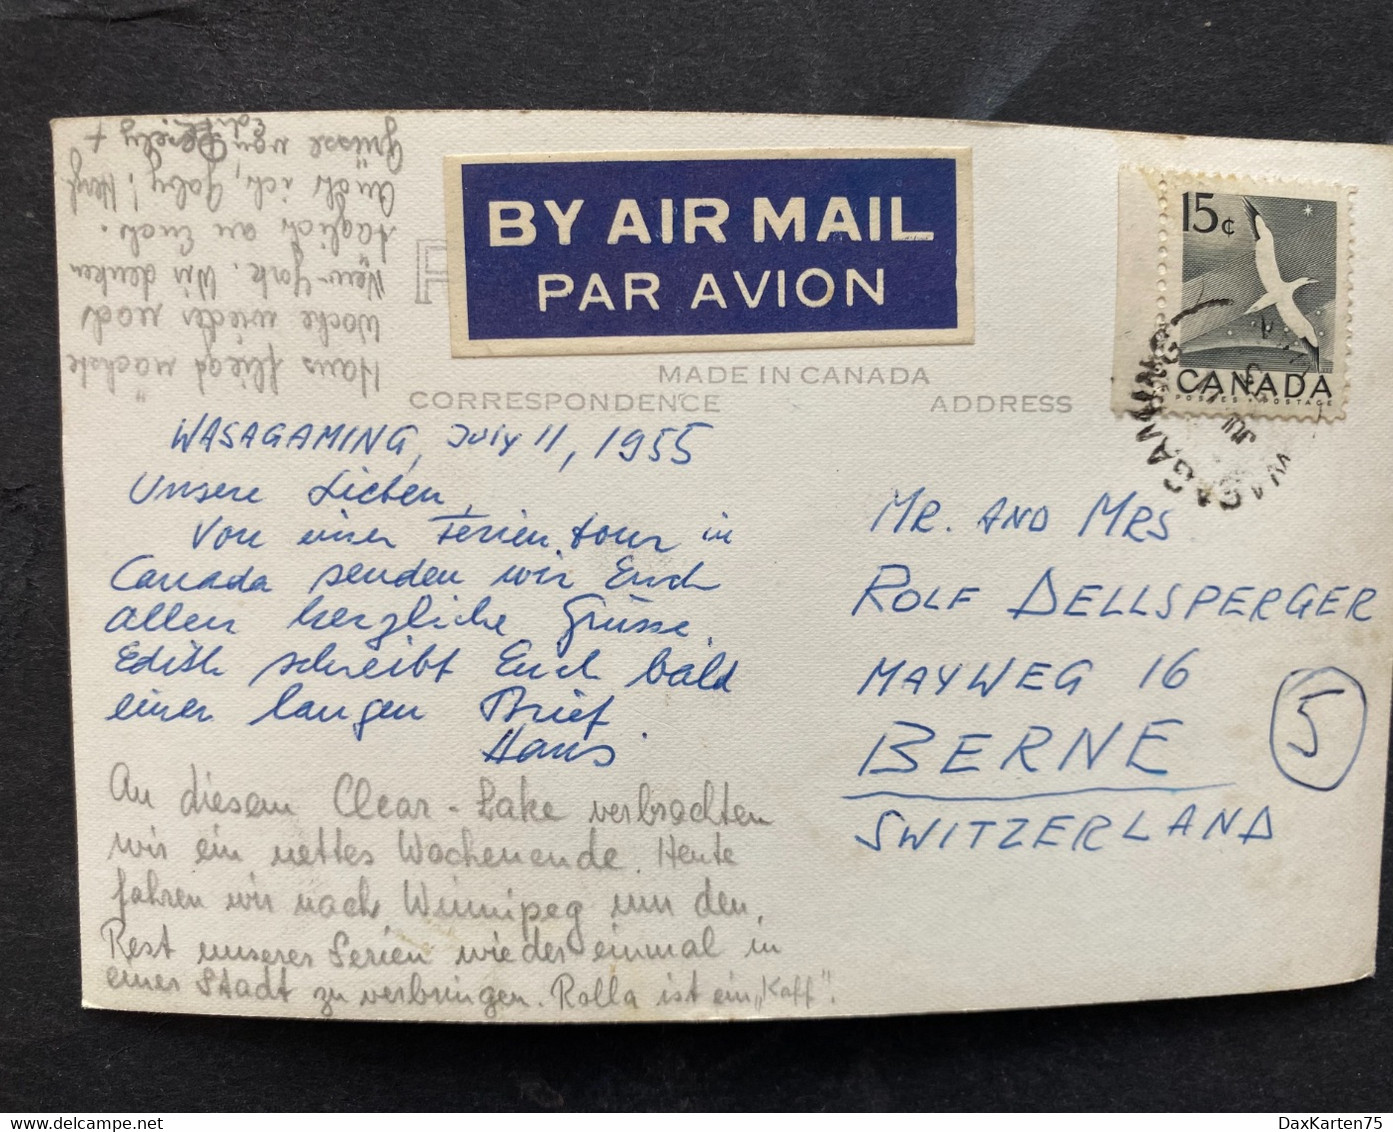 BY AIR MAIL
PAR AVION
P
MADE IN CANADA
CORRESPONDENCE
ADDRESS
15¢
CANADA
POSTES • POSTAGE
WASAGAMING
WASAGAMING, July 11, 1955
Unsere Lieben,
Von einer Ferientour in
Canada senden wir Euch
allen herzliche Grüsse.
Edith schreibt Euch bald
einen langen Brief
Hans.
An diesem Clear-Lake verbrachten
wir ein nettes Wochenende. Heute
fahren wir nach Winnipeg um den
Rest unserer Ferien wieder einmal in
einer Stadt zu verbringen. Rolla ist ein „Kaff".
Hans fliegt nächste
Woche wieder nach
New-York. Wir denken
täglich an Euch.
auch ich, Gaby! Herzl.
Grüsse von +
Edith
MR. AND MRS
ROLF DELLSPERGER
MAYWEG 16
BERNE
SWITZERLAND
5
DaxKarten75